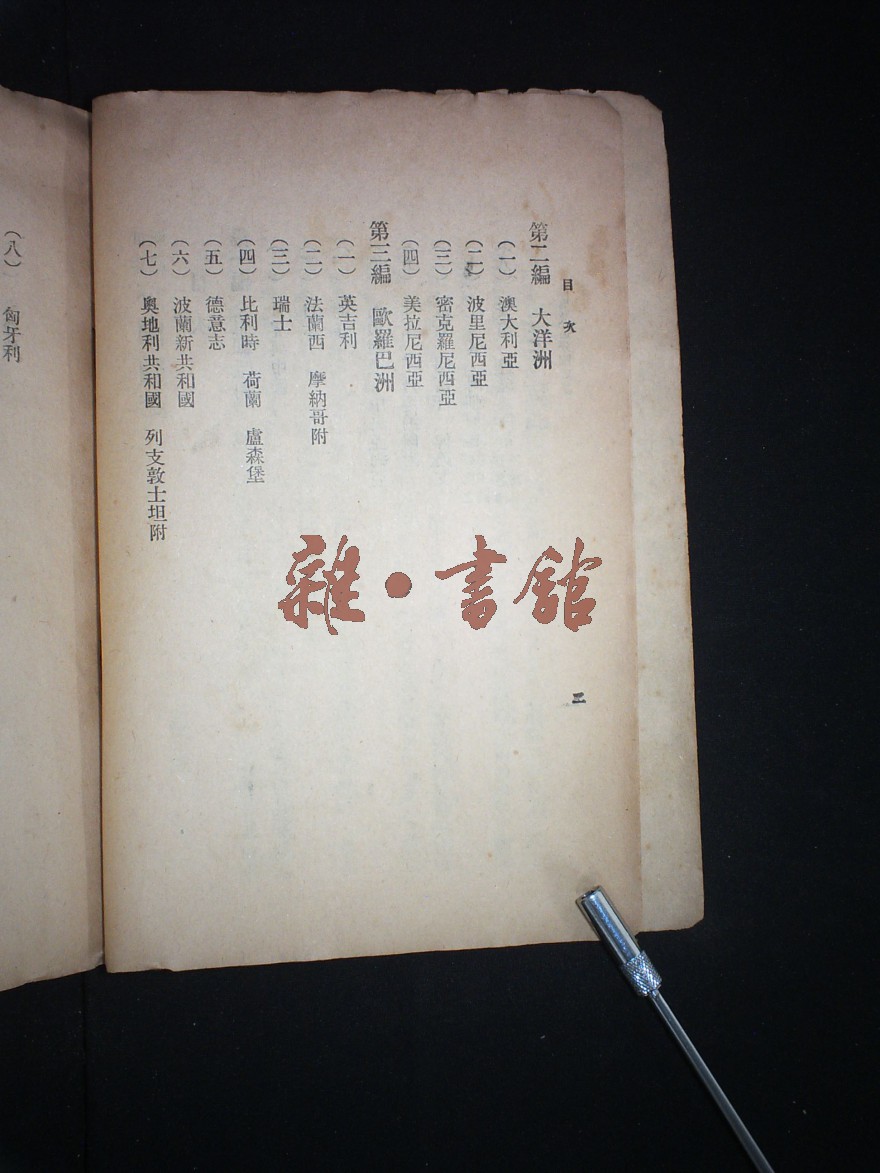 目次
第二編 大洋洲
(一) 澳大利亞
(二) 波里尼西亞
(三) 密克羅尼西亞
(四) 美拉尼西亞
第三編 歐羅巴洲
(一) 英吉利
(二) 法蘭西 摩納哥附
(三) 瑞士
(四) 比利時 荷蘭 盧森堡
(五) 德意志
(六) 波蘭新共和國
(七) 奧地利共和國 列支敦士坦附
二
(八) 匈牙利
雜·書館